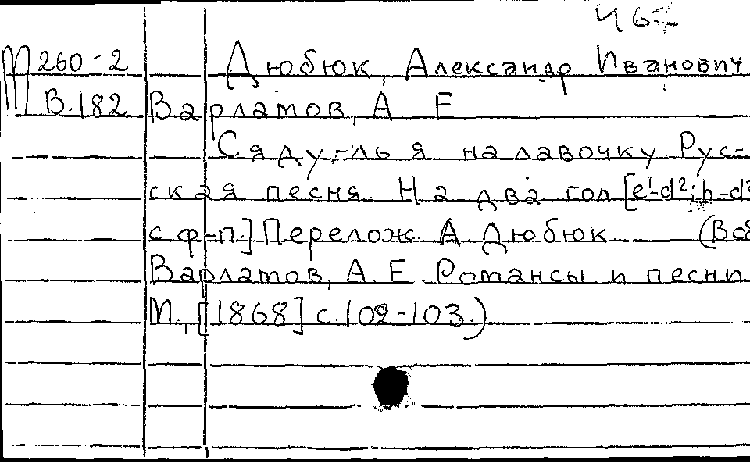 467
М 260-2 Дюбюк, Александр Иванович
В.182 Варламов, А Е
Сяду-ль я на лавочку Рус-
ская песня. На два гол [e¹-d²; h-d²
с ф-п.] Перелож. А Дюбюк (Во
Варламов, А.Е Романсы и песни
М., [1868] с. 102-103.)